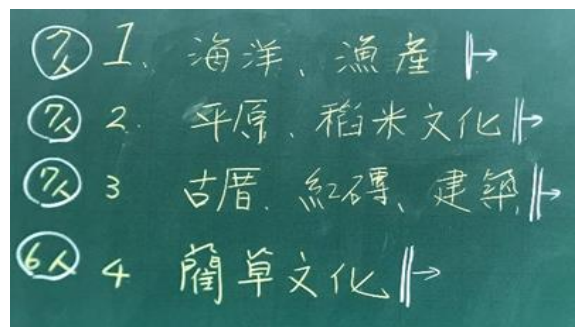 7人 1、海洋、漁產
7人 2. 平原、稻米文化
7人 3 古厝、紅磚、建築
6人 4 藺草文化